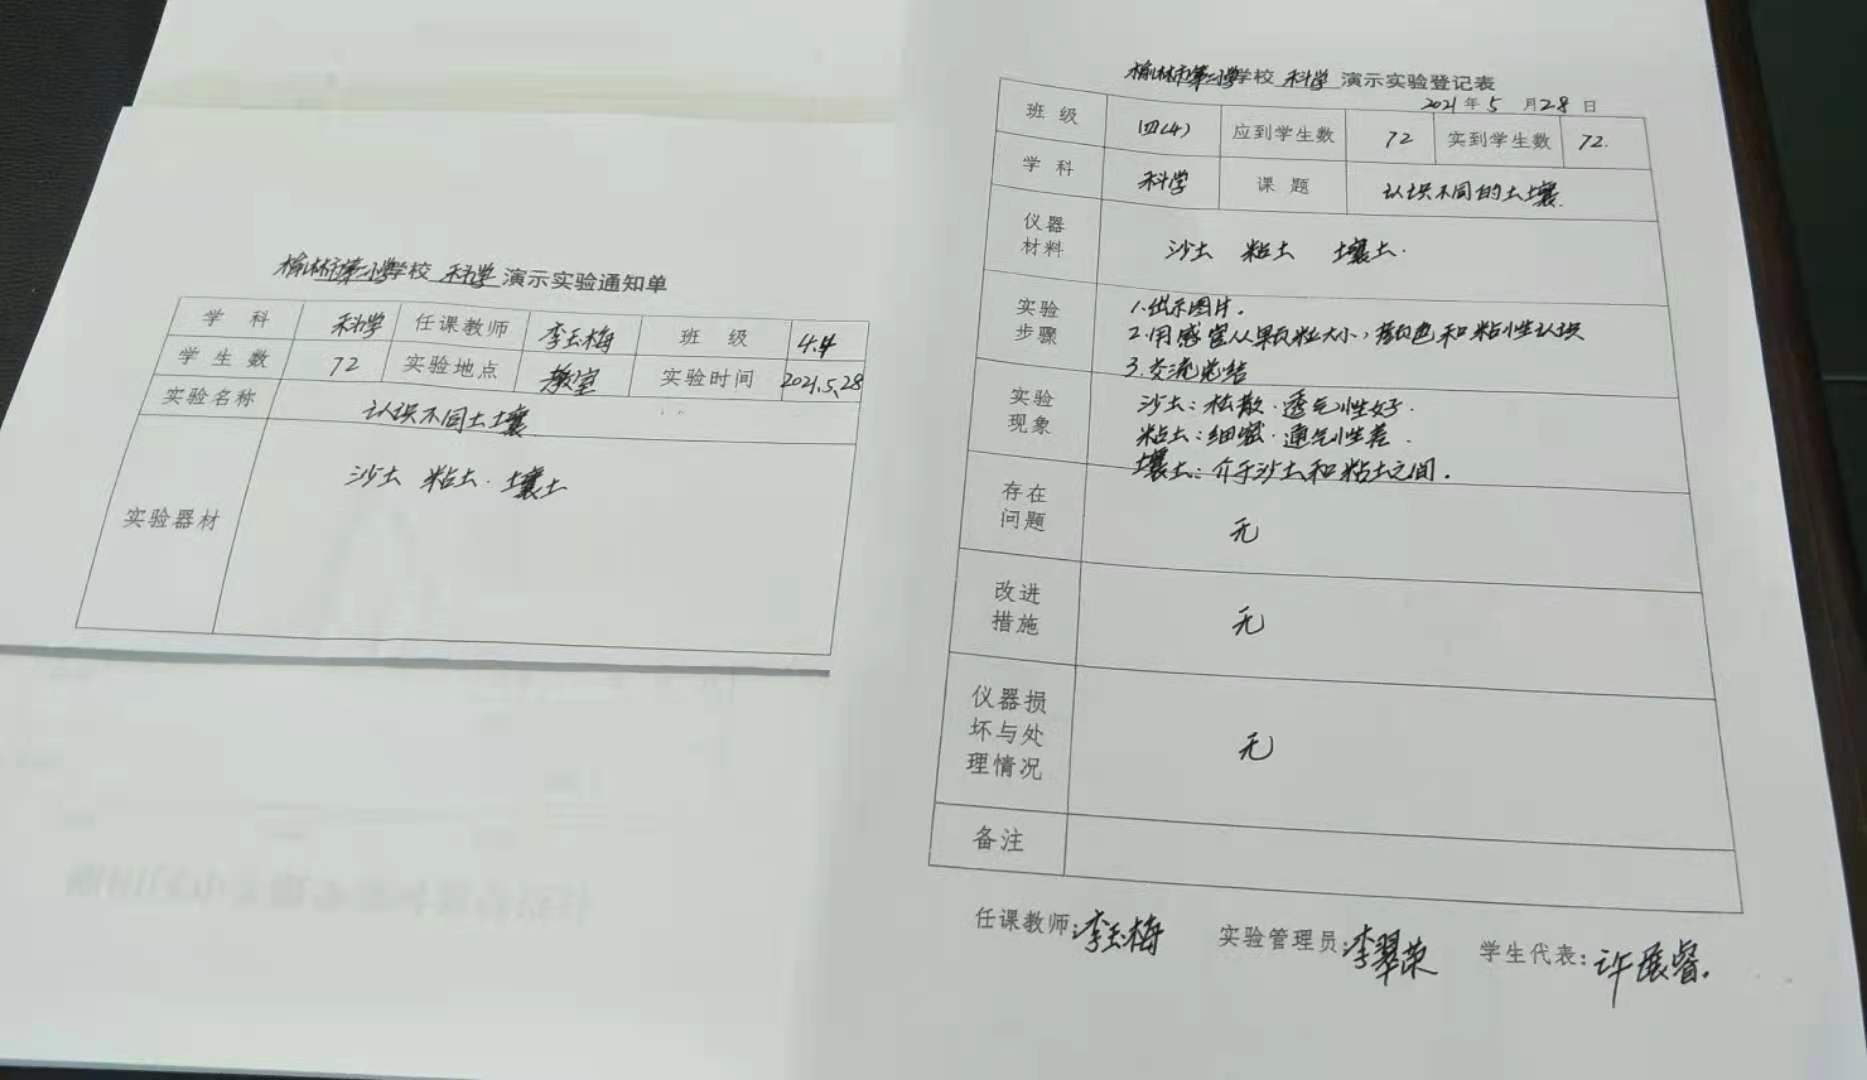 榆林市第二小学学校 科学 演示实验通知单
学 科 科学 任课教师 李玉梅 班 级 4.4
学生数 72 实验地点 教室 实验时间 2021.5.28
实验名称 认识不同土壤
实验器材 沙土 粘土. 壤土
榆林市第二小学学校 科学 演示实验登记表
2021 年 5 月 28 日
班 级 四(4) 应到学生数 72 实到学生数 72.
学 科 科学 课 题 认识不同的土壤.
仪器
材料
沙土 粘土 壤土.
实验
步骤
1.出示图片.
2.用感官从颗粒大小,颜色和粘性认识
3.交流总结
实验
现象
沙土:松散.透气性好.
粘土:细密.通气性差.
壤土:介于沙土和粘土之间.
存在
问题
无
改进
措施
无
仪器损
坏与处
理情况
无
备注
任课教师:李玉梅 实验管理员:李翠荣 学生代表:许展睿.